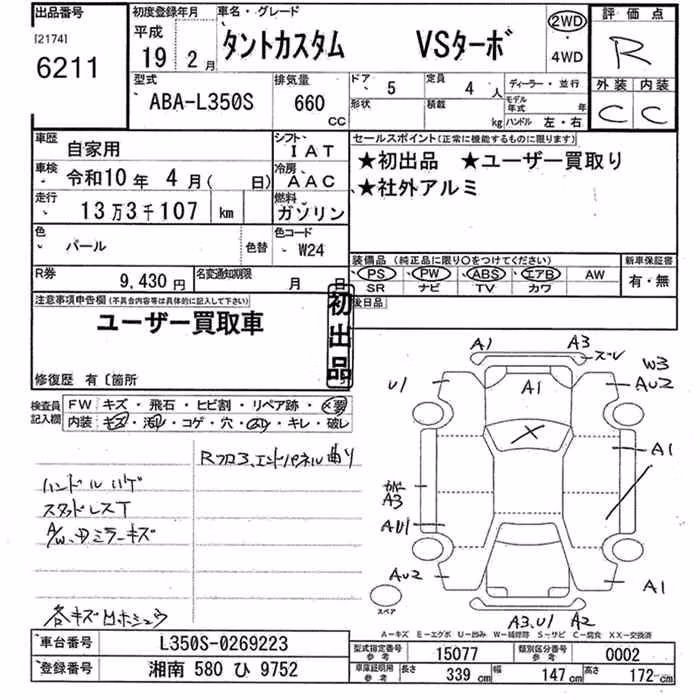 出品番号 初度登録年月 車名・グレード 評価点
[2174] 平成 2WD
6211 19年 2月 タントカスタム VSターボ ・ 4WD R
型式 排気量 ドア 5 定員 4人 ディーラー・並行 外装 内装
ABA-L350S 660 cc 形状 積載 kg モデル年式 年 ハンドル 左・右 C C
車歴 自家用 シフト IAT セールスポイント(正常に機能するものに限ります)
車検 令和10年 4月( 日) 冷房 AAC ★初出品 ★ユーザー買取り
走行 13万3千107 km 燃料 ガソリン ★社外アルミ
色 パール 色替 色コード W24
装備品(純正品に限り○をつけてください) 新車保証書
R券 9,430円 名変通知期限 月 日 PS PW ABS エアB AW 有・無
SR ナビ TV カワ
注意事項申告欄(不具合内容等は具体的に記入して下さい) 初出品 後日品
ユーザー買取車
修復歴 有〔箇所
検査員記入欄 FW キズ・飛石・ヒビ割・リペア跡・X要
内装 キズ・汚れ・コゲ・穴・スレ・キレ・破レ
Rフロア、エンドパネル曲り
ハンドルハゲ
スタッドレスT
A/W、ミラーキズ
各キズ凹ホシュウ
A1 A3 スーレ
U1 A1 W3
AU2
X A1
A3
AU1
AU2 A1
スペア A3,U1 A2
A-キズ E-エクボ U-凹み W-補修跡 S-サビ C-腐食 XX-交換済
車台番号 L350S-0269223 型式指定番号 参考 15077 類別区分番号 参考 0002
登録番号 湘南 580 ひ 9752 車庫証明用 参考 長さ 339 cm 幅 147 cm 高さ 172 cm